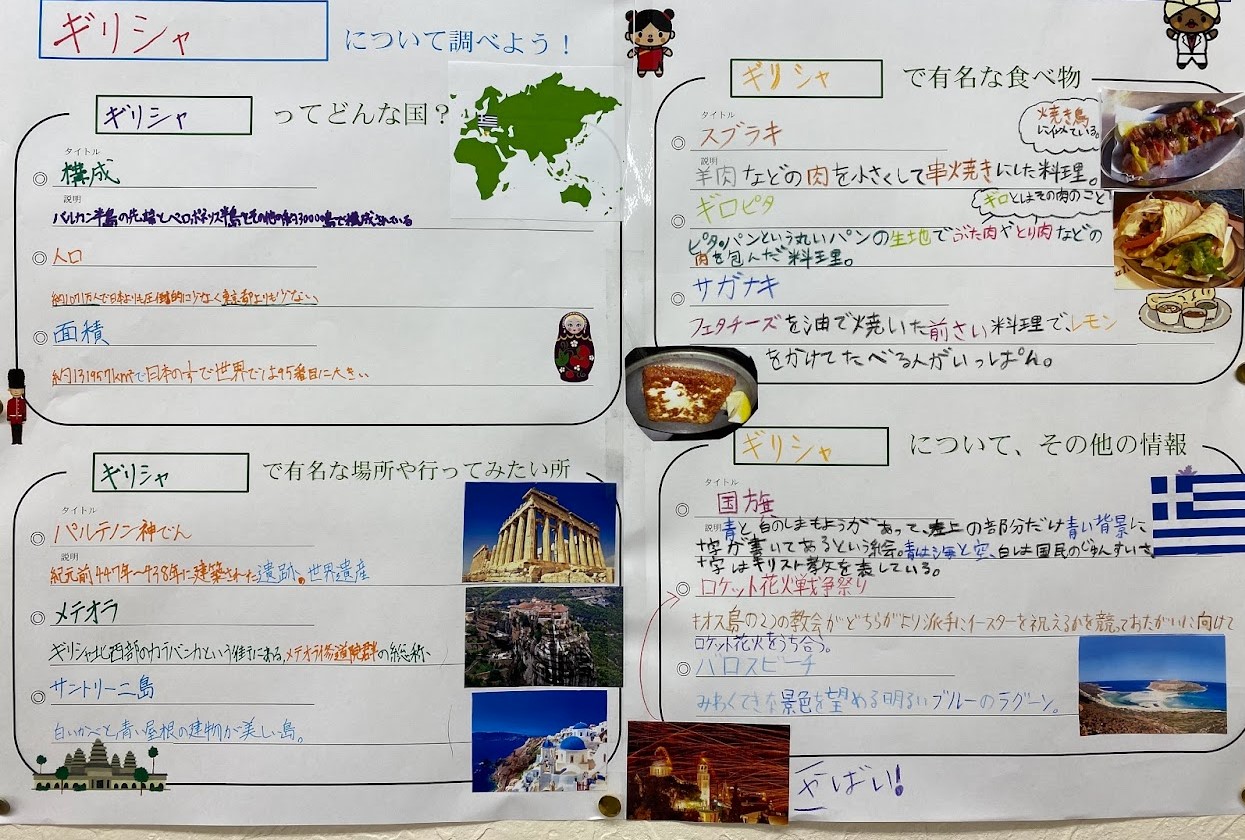 ギリシャ について調べよう！
ギリシャ ってどんな国？
タイトル
◎ 構成
説明
バルカン半島の先端とペロポネソス半島とその他の約3000島で構成されている
◎ 人口
約1071万人で日本よりも圧倒的に少なく東京都よりも少ない、
◎ 面積
約131957km²で日本の で世界では95番目に大きい
ギリシャ で有名な場所や行ってみたい所
タイトル
◎ パルテノン神でん
説明
紀元前447年〜438年に建築された遺跡。世界遺産
◎ メテオラ
ギリシャ北西部のカランバカという街にある、メテオラ修道院群の総称、
◎ サントリーニ島
白いかべと青い屋根の建物が美しい島。
ギリシャ で有名な食べ物
タイトル
◎ スブラキ
焼き鳥
に似ている。
説明
羊肉などの肉を小さくして串焼きにした料理。
◎ ギロピタ
ギロとはその肉のこと
ピタ・パンという丸いパンの生地でぶた肉やとり肉などの
肉を包んだ料理。
◎ サガナキ
フェタチーズを油で焼いた前さい料理でレモン
をかけてたべる人がいっぱん。
ギリシャ について、その他の情報
タイトル
◎ 国旗
説明
青と白のしまもようがあって、左上の部分だけ青い背景に
十字が書いてあるという絵。青は海と空、白は国民のじゅんすいさ
十字はキリスト教を表している。
◎ ロケット花火戦争祭り
キオス島の2つの教会がどちらがより派手にイースターを祝えるかを競っておたがいに向けて
ロケット花火をうち合う。
◎ バロスビーチ
みわくてきな景色を望める明るいブルーのラグーン。
やばい！